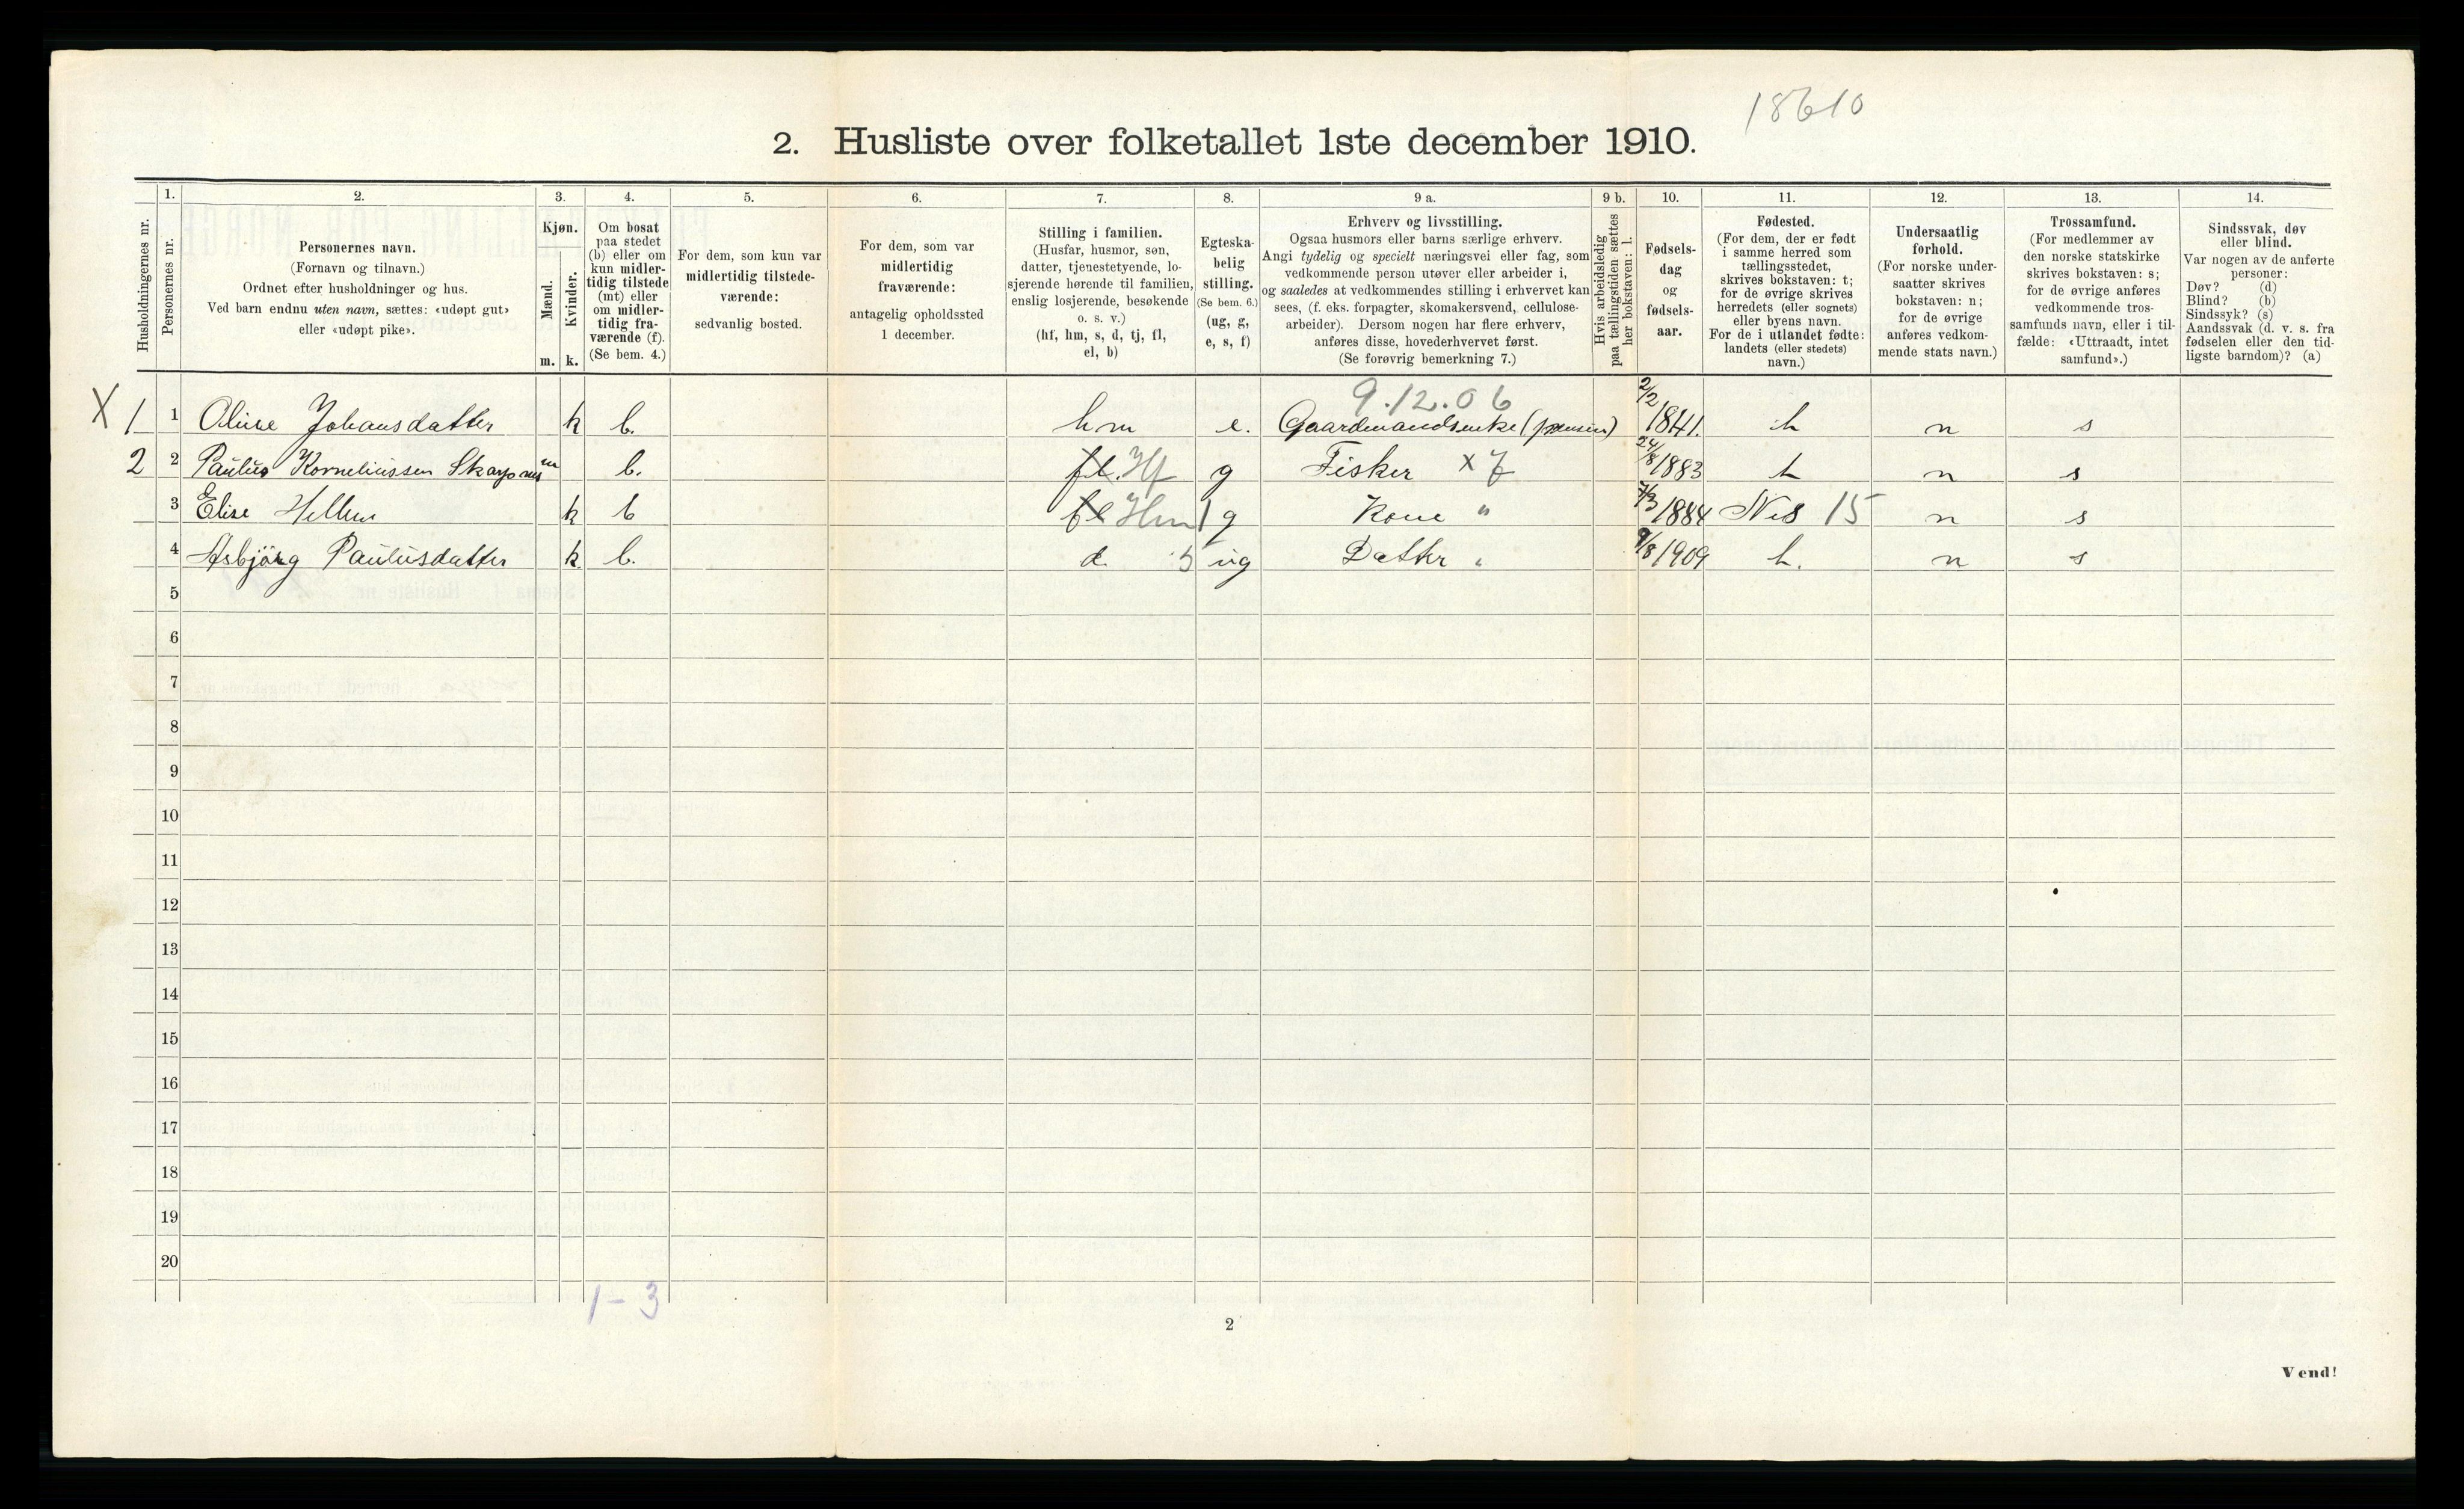 18610
2. Husliste over folketallet 1ste december 1910.
Husholdningernes nr.
1.
Personernes nr.
2.
Personernes navn.
(Fornavn og tilnavn.)
Ordnet efter husholdninger og hus.
Ved barn endnu uten navn, sættes: «udøpt gut»
eller «udøpt pike».
3.
Kjøn.
Mænd.
Kvinder.
m. k.
4.
Om bosat
paa stedet
(b) eller om
kun midler-
tidig tilstede
(mt) eller
om midler-
tidig fra-
værende (f).
(Se bem. 4.)
5.
For dem, som kun var
midlertidig tilstede-
værende:
sedvanlig bosted.
6.
For dem, som var
midlertidig
fraværende:
antagelig opholdssted
1 december.
7.
Stilling i familien.
(Husfar, husmor, søn,
datter, tjenestetyende, lo-
sjerende hørende til familien,
enslig losjerende, besøkende
o. s. v.)
(hf, hm, s, d, tj, fl,
el, b)
8.
Egteska-
belig
stilling.
(Se bem. 6.)
(ug, g,
e, s, f)
9 a.
Erhverv og livsstilling.
Ogsaa husmors eller barns særlige erhverv.
Angi tydelig og specielt næringsvei eller fag, som
vedkommende person utøver eller arbeider i,
og saaledes at vedkommendes stilling i erhvervet kan
sees, (f. eks. forpagter, skomakersvend, cellulose-
arbeider). Dersom nogen har flere erhverv,
anføres disse, hovederhvervet først.
(Se forøvrig bemerkning 7.)
9 b.
Hvis arbeidsledig
paa tællingstiden sættes
her bokstaven: l.
10.
Fødsels-
dag
og
fødsels-
aar.
11.
Fødested.
(For dem, der er født
i samme herred som
tællingsstedet,
skrives bokstaven: t;
for de øvrige skrives
herredets (eller sognets)
eller byens navn.
For de i utlandet fødte:
landets (eller stedets)
navn.)
12.
Undersaatlig
forhold.
(For norske under-
saatter skrives
bokstaven: n;
for de øvrige
anføres vedkom-
mende stats navn.)
13.
Trossamfund.
(For medlemmer av
den norske statskirke
skrives bokstaven: s;
for de øvrige anføres
vedkommende tros-
samfunds navn, eller i til-
fælde: «Uttraadt, intet
samfund».)
14.
Sindssvak, døv
eller blind.
Var nogen av de anførte
personer:
Døv? (d)
Blind? (b)
Sindssyk? (s)
Aandssvak (d. v. s. fra
fødselen eller den tid-
ligste barndom)? (a)
9.12.06
X 1 1 Oline Johansdatter k b. hm e. Gaardmandsenke (pension) 2/2 1841. t n s
2 2 Paulus Korneliussen m b. fl. Hf g Fisker x 7 24/8 1883 t n s
3 Elise Hellem k b fl Hm 1 g Kone " 7/3 1884 Nes 15 n s
4 Asbjörg Paulusdatter k b. d. 5 ug Datter " 9/8 1909 t. n s
5
6
7
8
9
10
11
12
13
14
15
16
17
18
19
20
1 - 3
2
Vend!